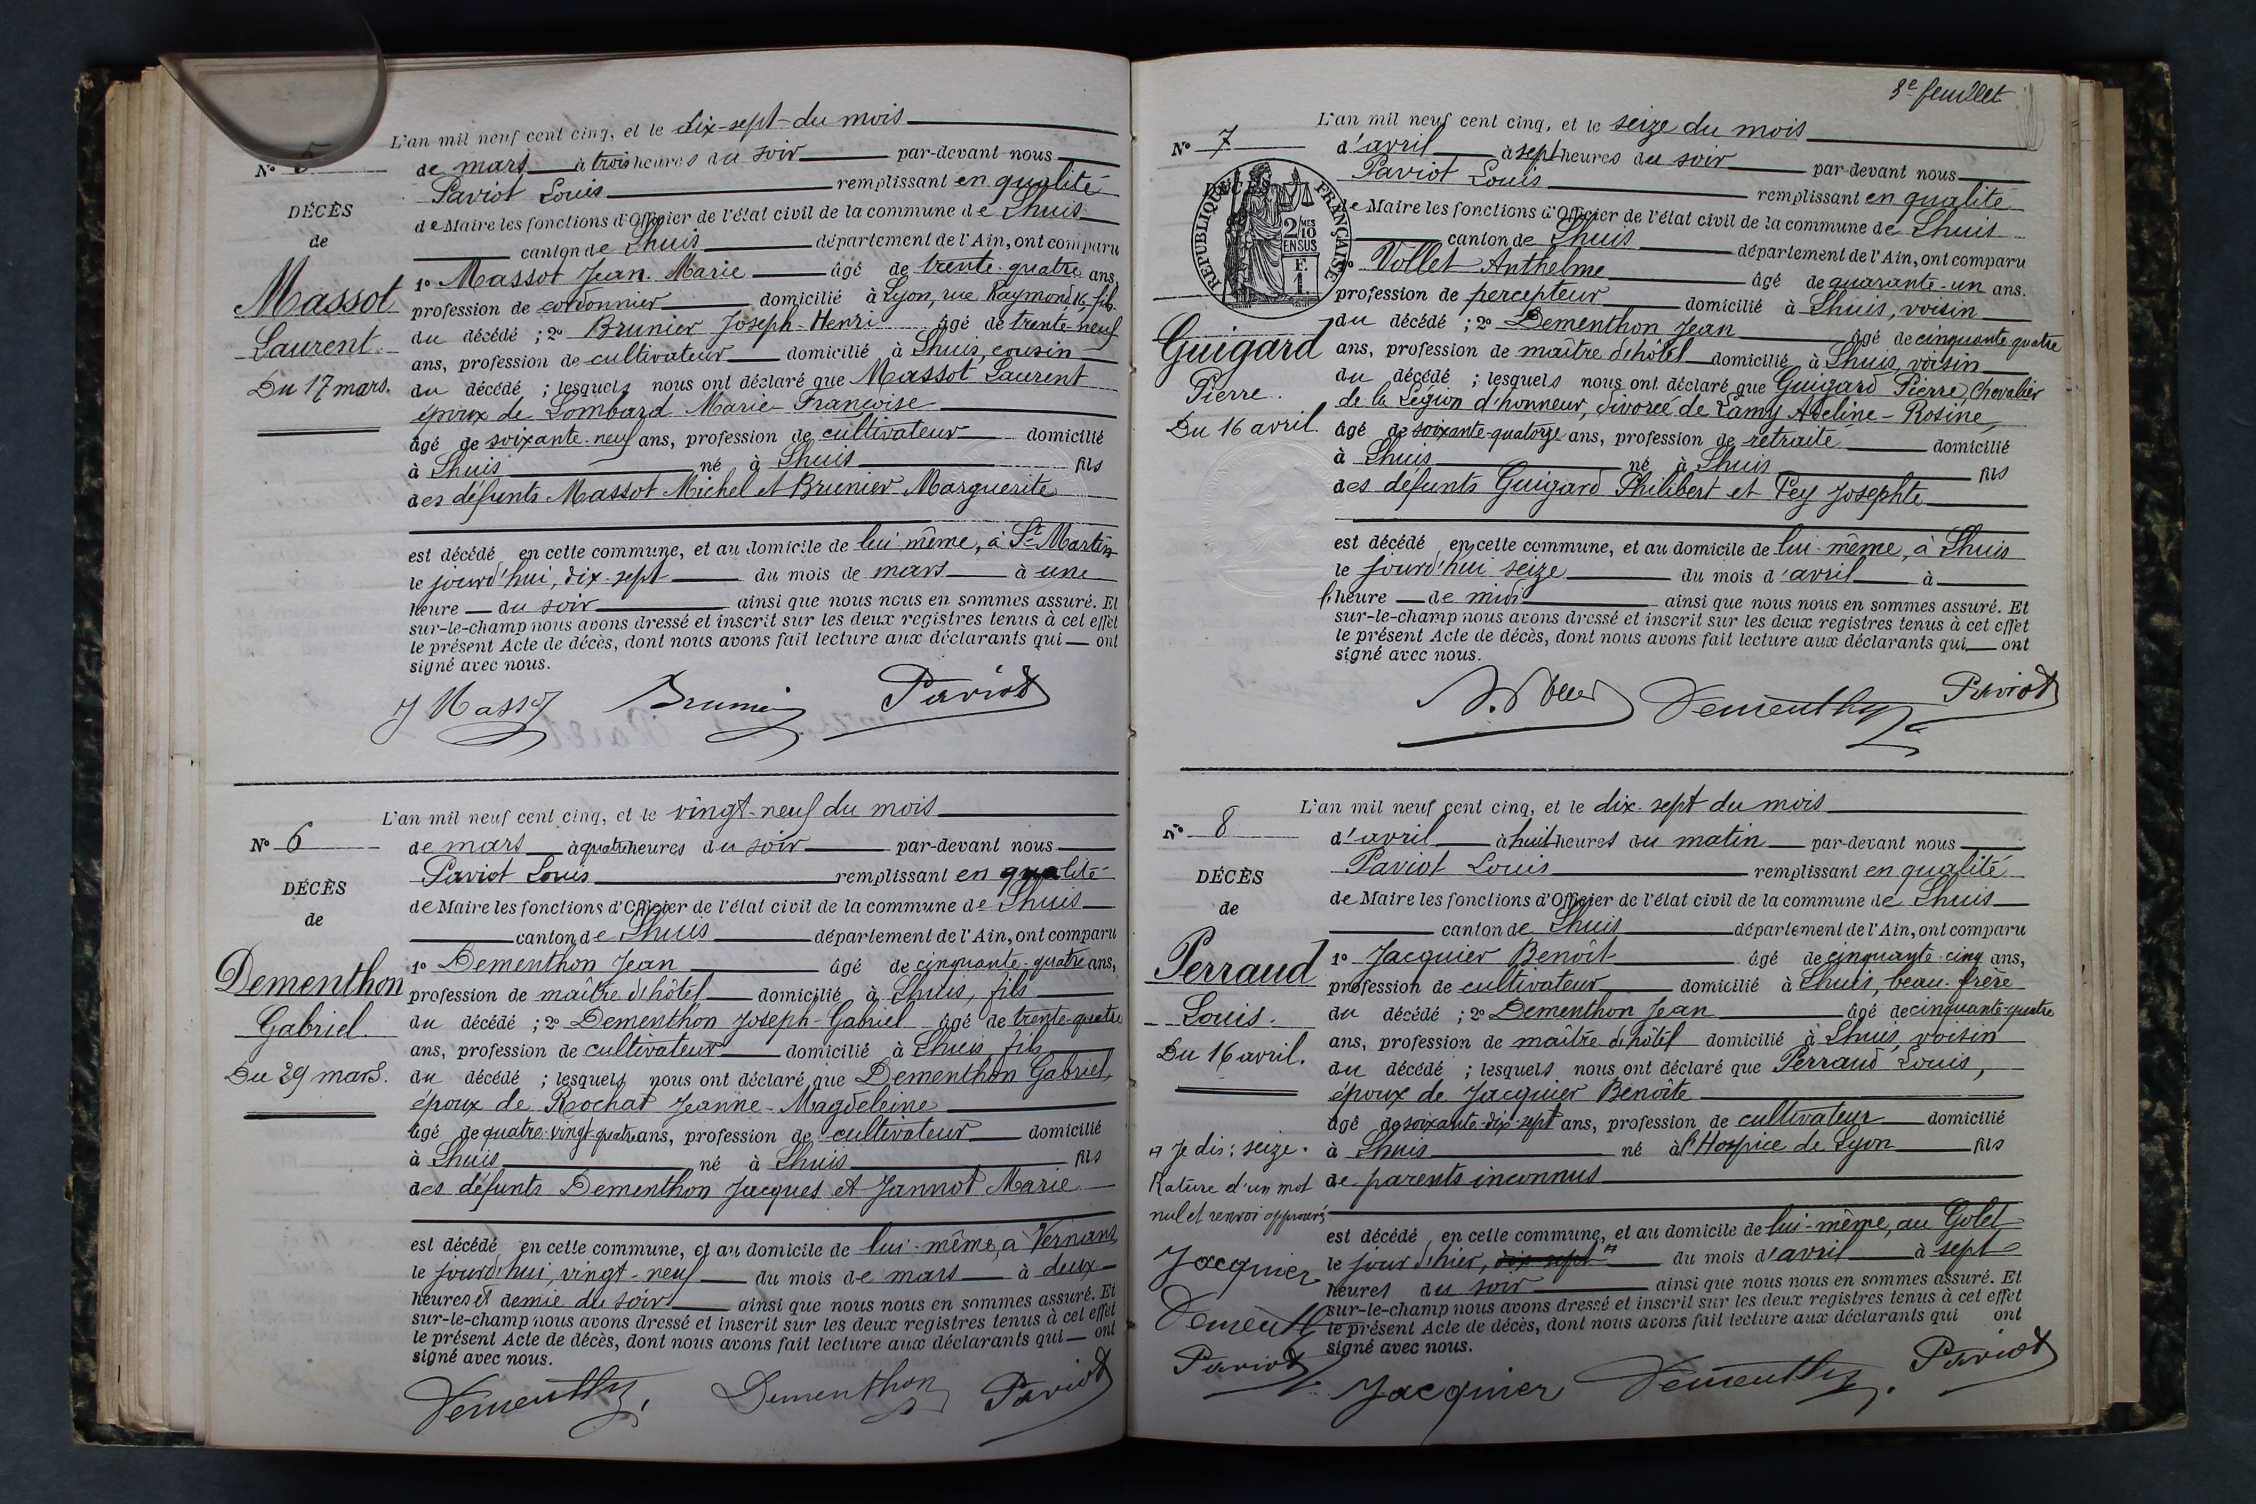 L'an mil neuf cent cinq, et le dix-sept du mois
N° 5
de mars à trois heures du soir par-devant nous
Paviot Louis remplissant en qualité
DÉCÈS
de Maire les fonctions d'Officier de l'état civil de la commune de Lhuis
de
canton de Lhuis département de l'Ain, ont comparu
Massot
1° Massot Jean-Marie âgé de trente-quatre ans,
profession de cordonnier domicilié à Lyon, rue Raymond, 16, fils
Laurent
du décédé ; 2° Brunier Joseph-Henri âgé de trente-neuf
ans, profession de cultivateur domicilié à Lhuis, cousin
Du 17 mars.
du décédé ; lesquels nous ont déclaré que Massot Laurent
époux de Lombard Marie-Françoise
âgé de soixante-neuf ans, profession de cultivateur domicilié
à Lhuis né à Lhuis fils
des défunts Massot Michel et Brunier Marguerite
est décédé en cette commune, et au domicile de lui-même, à St Martin
le jourd'hui, dix-sept du mois de mars à une
heure du soir ainsi que nous nous en sommes assuré. Et
sur-le-champ nous avons dressé et inscrit sur les deux registres tenus à cet effet
le présent Acte de décès, dont nous avons fait lecture aux déclarants qui ont
signé avec nous.
J Massot Brunier Paviot
L'an mil neuf cent cinq, et le vingt-neuf du mois
N° 6
de mars à quatre heures du soir par-devant nous
Paviot Louis remplissant en qualité
DÉCÈS
de Maire les fonctions d'Officier de l'état civil de la commune de Lhuis
de
canton de Lhuis département de l'Ain, ont comparu
Dementhon
1° Dementhon Jean âgé de cinquante-quatre ans,
profession de maître d'hôtel domicilié à Lhuis, fils
Gabriel
du décédé ; 2° Dementhon Joseph-Gabriel âgé de trente-quatre
ans, profession de cultivateur domicilié à Lhuis fils
Du 29 mars.
du décédé ; lesquels nous ont déclaré que Dementhon Gabriel,
époux de Rochat Jeanne-Magdeleine
âgé de quatre-vingt-quatre ans, profession de cultivateur domicilié
à Lhuis né à Lhuis fils
des défunts Dementhon Jacques et Jannot Marie
est décédé en cette commune, et au domicile de lui-même, à Vernans
le jourd'hui, vingt-neuf du mois de mars à deux
heures et demie du soir ainsi que nous nous en sommes assuré. Et
sur-le-champ nous avons dressé et inscrit sur les deux registres tenus à cet effet
le présent Acte de décès, dont nous avons fait lecture aux déclarants qui ont
signé avec nous.
Dementhon Dementhon Paviot
3e feuillet
L'an mil neuf cent cinq, et le seize du mois
N° 7
d'avril à sept heures du soir par-devant nous
Paviot Louis remplissant en qualité
RÉPUBLIQUE FRANÇAISE
2/10 EN SUS
F. 1.
de Maire les fonctions d'Officier de l'état civil de la commune de Lhuis
canton de Lhuis département de l'Ain, ont comparu
Vollet Anthelme âgé de quarante-un ans.
profession de percepteur domicilié à Lhuis, voisin
Guigard
du décédé ; 2° Dementhon Jean âgé de cinquante-quatre
ans, profession de maître d'hôtel domicilié à Lhuis, voisin
Pierre.
du décédé ; lesquels nous ont déclaré que Guigard Pierre, Chevalier
de la Légion d'honneur, divorcé de Lamy Adeline-Rosine,
Du 16 avril.
âgé de soixante-quatorze ans, profession de retraité domicilié
à Lhuis né à Lhuis fils
des défunts Guigard Philibert et Fey Josephte
est décédé en cette commune, et au domicile de lui-même, à Lhuis
le jourd'hui seize du mois d'avril à
l'heure de midi ainsi que nous nous en sommes assuré. Et
sur-le-champ nous avons dressé et inscrit sur les deux registres tenus à cet effet
le présent Acte de décès, dont nous avons fait lecture aux déclarants qui ont
signé avec nous.
Dementhon Paviot
L'an mil neuf cent cinq, et le dix-sept du mois
N° 8
d'avril à huit heures du matin par-devant nous
Paviot Louis remplissant en qualité
DÉCÈS
de Maire les fonctions d'Officier de l'état civil de la commune de Lhuis
de
canton de Lhuis département de l'Ain, ont comparu
Perraud
1° Jacquier Benoît âgé de cinquante-cinq ans,
profession de cultivateur domicilié à Lhuis, beau-frère
Louis.
du décédé ; 2° Dementhon Jean âgé de cinquante-quatre
ans, profession de maître d'hôtel domicilié à Lhuis, voisin
Du 16 avril.
du décédé ; lesquels nous ont déclaré que Perraud Louis,
époux de Jacquier Benoîte
âgé de soixante-dix-sept ans, profession de cultivateur domicilié
à Lhuis né à l'Hospice de Lyon fils
de parents inconnus
est décédé en cette commune, et au domicile de lui-même, au Golet
le jour d'hier, dix-sept du mois d'avril à sept
heures du soir ainsi que nous nous en sommes assuré. Et
sur-le-champ nous avons dressé et inscrit sur les deux registres tenus à cet effet
le présent Acte de décès, dont nous avons fait lecture aux déclarants qui ont
signé avec nous.
Je dis : seize.
Rature d'un mot
nul et renvoi approuvés
Jacquier
Dementhon
Paviot
Jacquier Dementhon Paviot